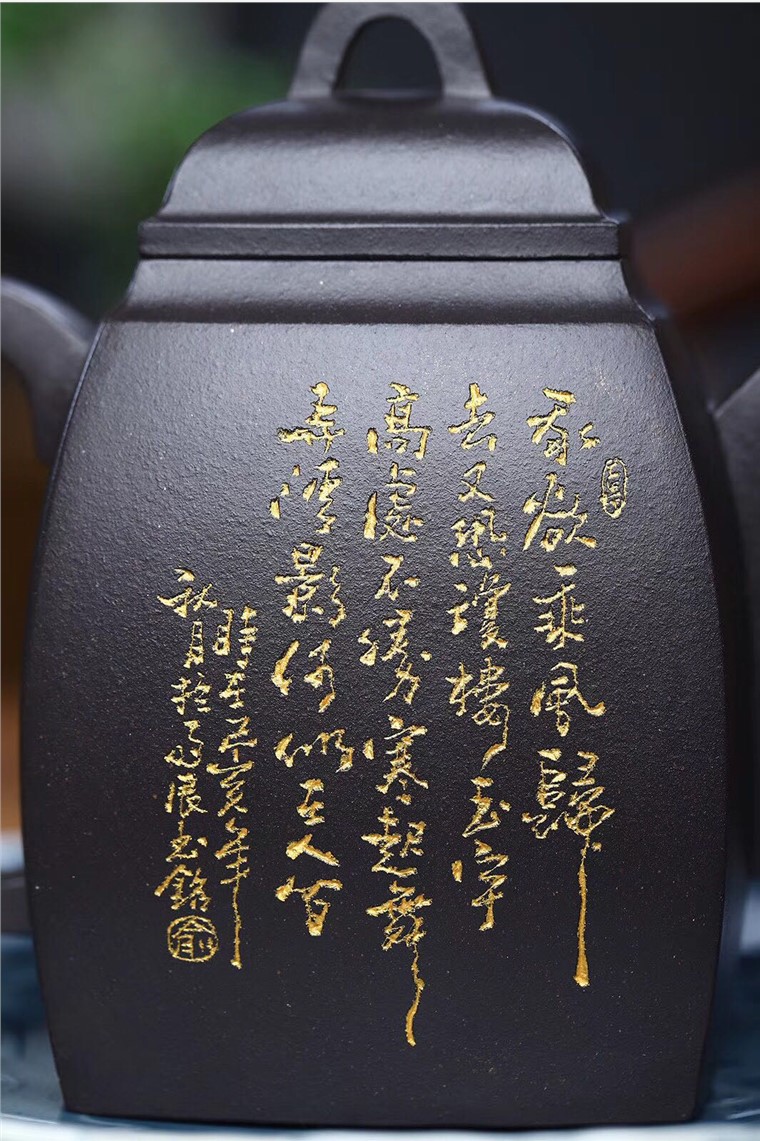 我欲乘風歸
去又恐瓊樓玉宇
高處不勝寒起舞
弄清影何似在人間
時在己亥年
秋月於銘
俞